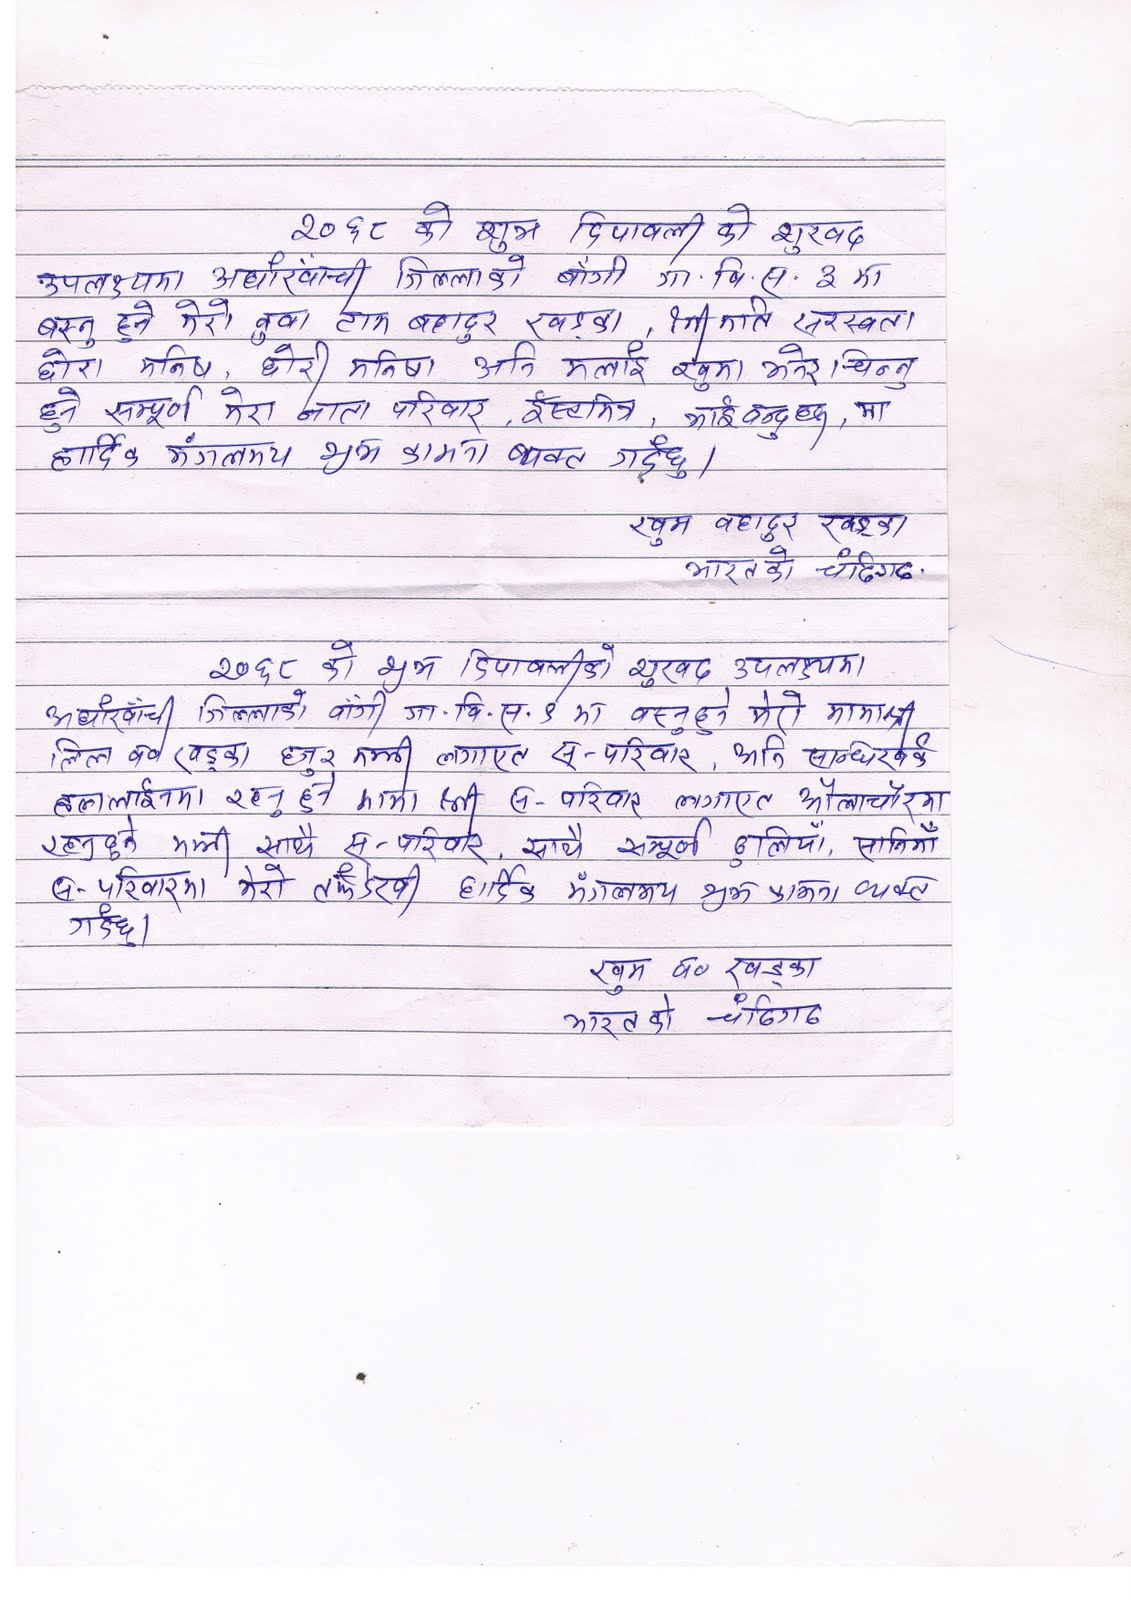 २०६८ को शुभ दिपावली को शुखद
उपलक्ष्यमा अर्घाखाँची जिल्लाको बाँगी गा. वि. स. ३ मा
बस्नु हुने मेरो बुवा टाम बहादुर खड्का, श्रीमति सरस्वता
छोरा मनिष, छोरी मनिषा अनि मलाई खुमा भनेर चिन्नु
हुने सम्पूर्ण मेरा नाता परिवार, ईस्टमित्र, भाई बन्दुहरु, मा
हार्दिक मंगलमय शुभ कामना ब्यक्त गर्दछु।
खुम बहादुर खड्का
भारतको चंढिगढ.
२०६८ को शुभ दिपावलीको शुखद उपलक्ष्यमा
अर्घाखाँची जिल्लाको बाँगी गा. वि. स. ३ मा बस्नुहुने मेरो मामाश्री
लिल ब० खड्का हजुर लगाएत स-परिवार, अनि सन्धिखर्क
रहनु हुने मामा स-परिवार लगाएत
रहनुहुने साथै स-परिवार, साथै सम्पूर्ण ठुलियाँ, सानिमाँ
स-परिवारमा मेरो तर्फबाट हार्दिक मंगलमय शुभ कामना व्यक्त
गर्दछु।
खुम ब० खड्का
भारतको चंढिगढ